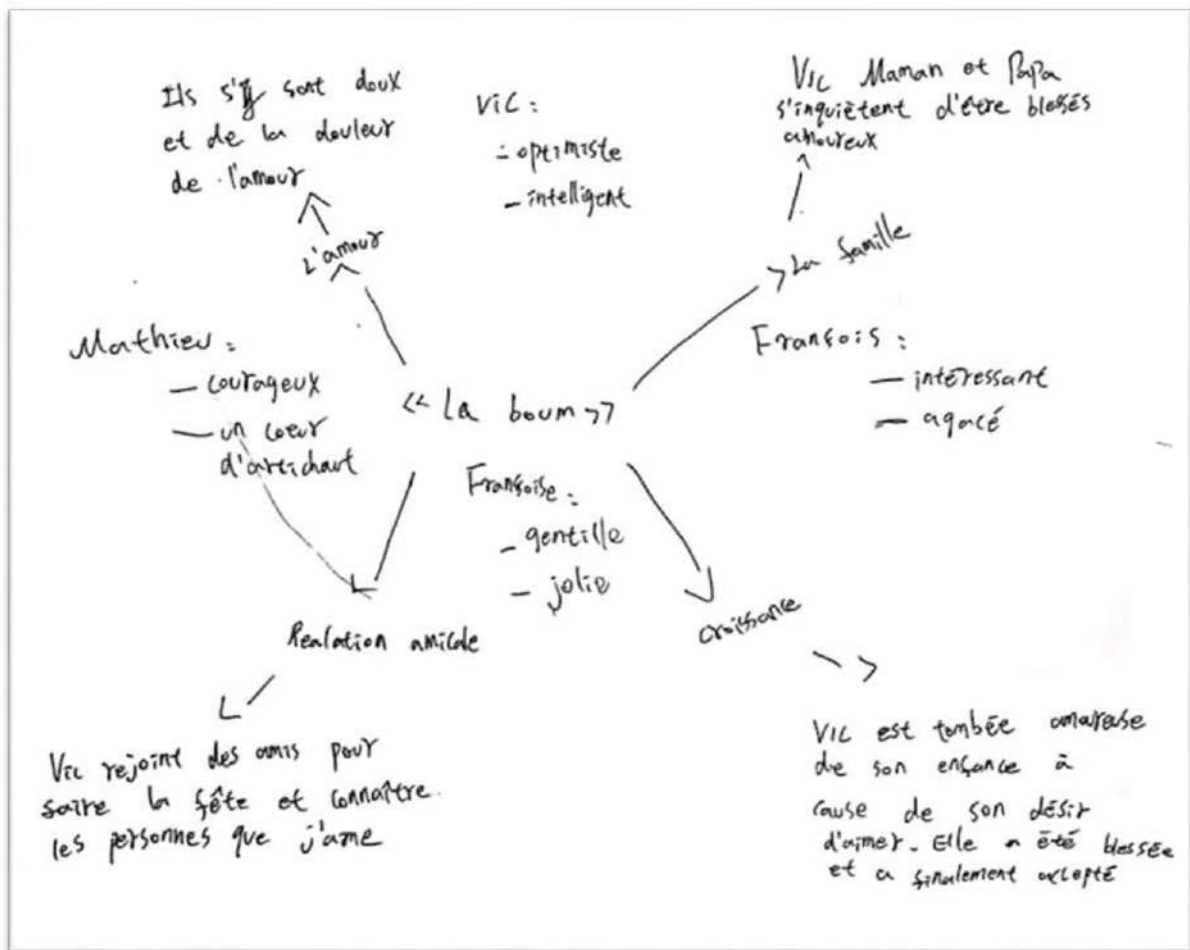 Ils s'y sont doux
et de la douleur
de l'amour
L'amour
Vic :
- optimiste
- intelligent
Vic Maman et Papa
s'inquiètent d'être blessés
amoureux
La famille
Mathieu :
- courageux
- un coeur
d'artichaut
« La boum »
François :
- intéressant
- agacé
Françoise :
- gentille
- jolie
Realation amicale
croissance
Vic rejoint des amis pour
faire la fête et connaître
les personnes que j'ame
Vic est tombée amareuse
de son enfance à
cause de son désir
d'aimer. Elle a été blessée
et a finalement accepté